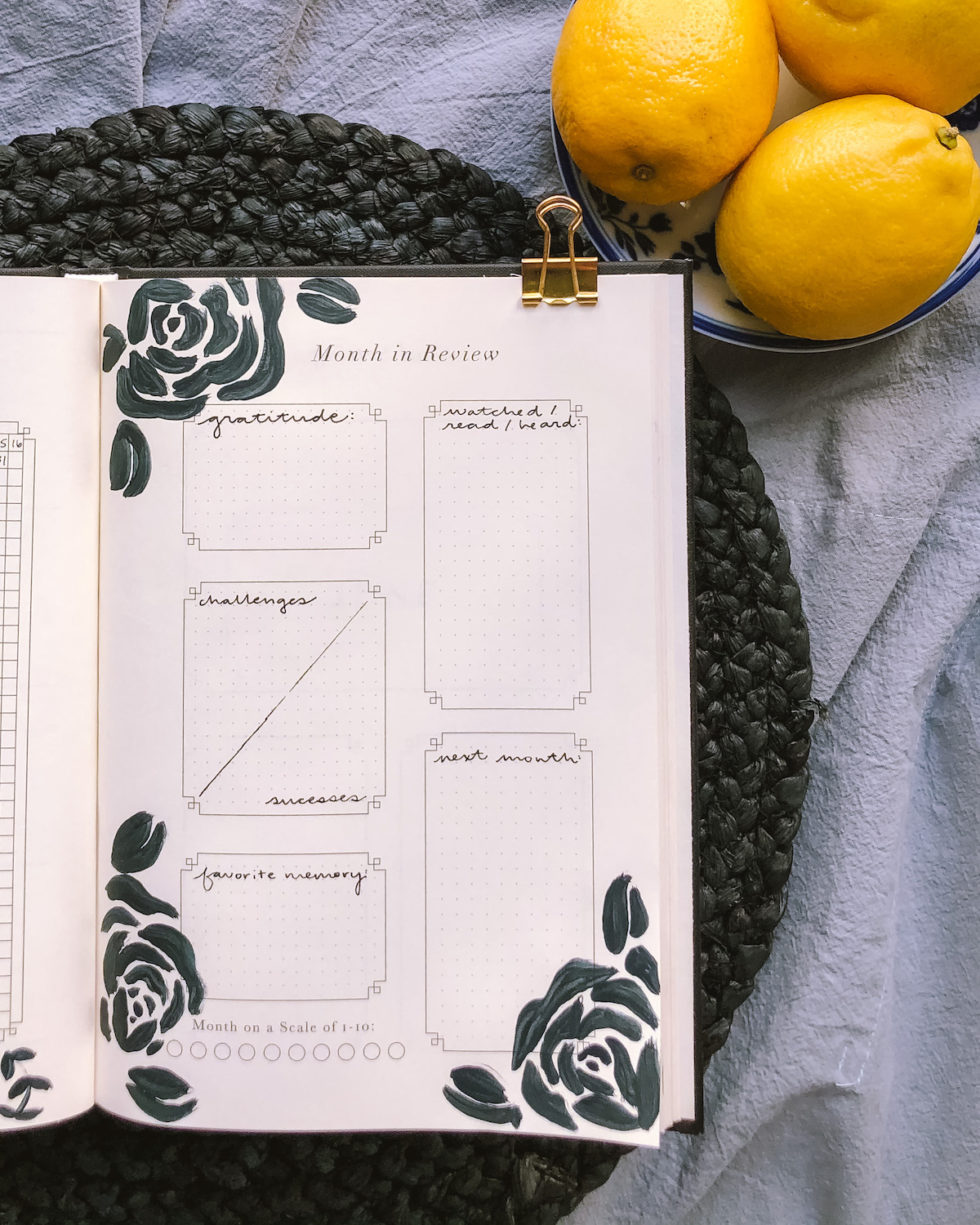 5 16
31
Month in Review
gratitude:
watched /
read / heard:
challenges
successes
favorite memory:
next month:
Month on a Scale of 1-10: